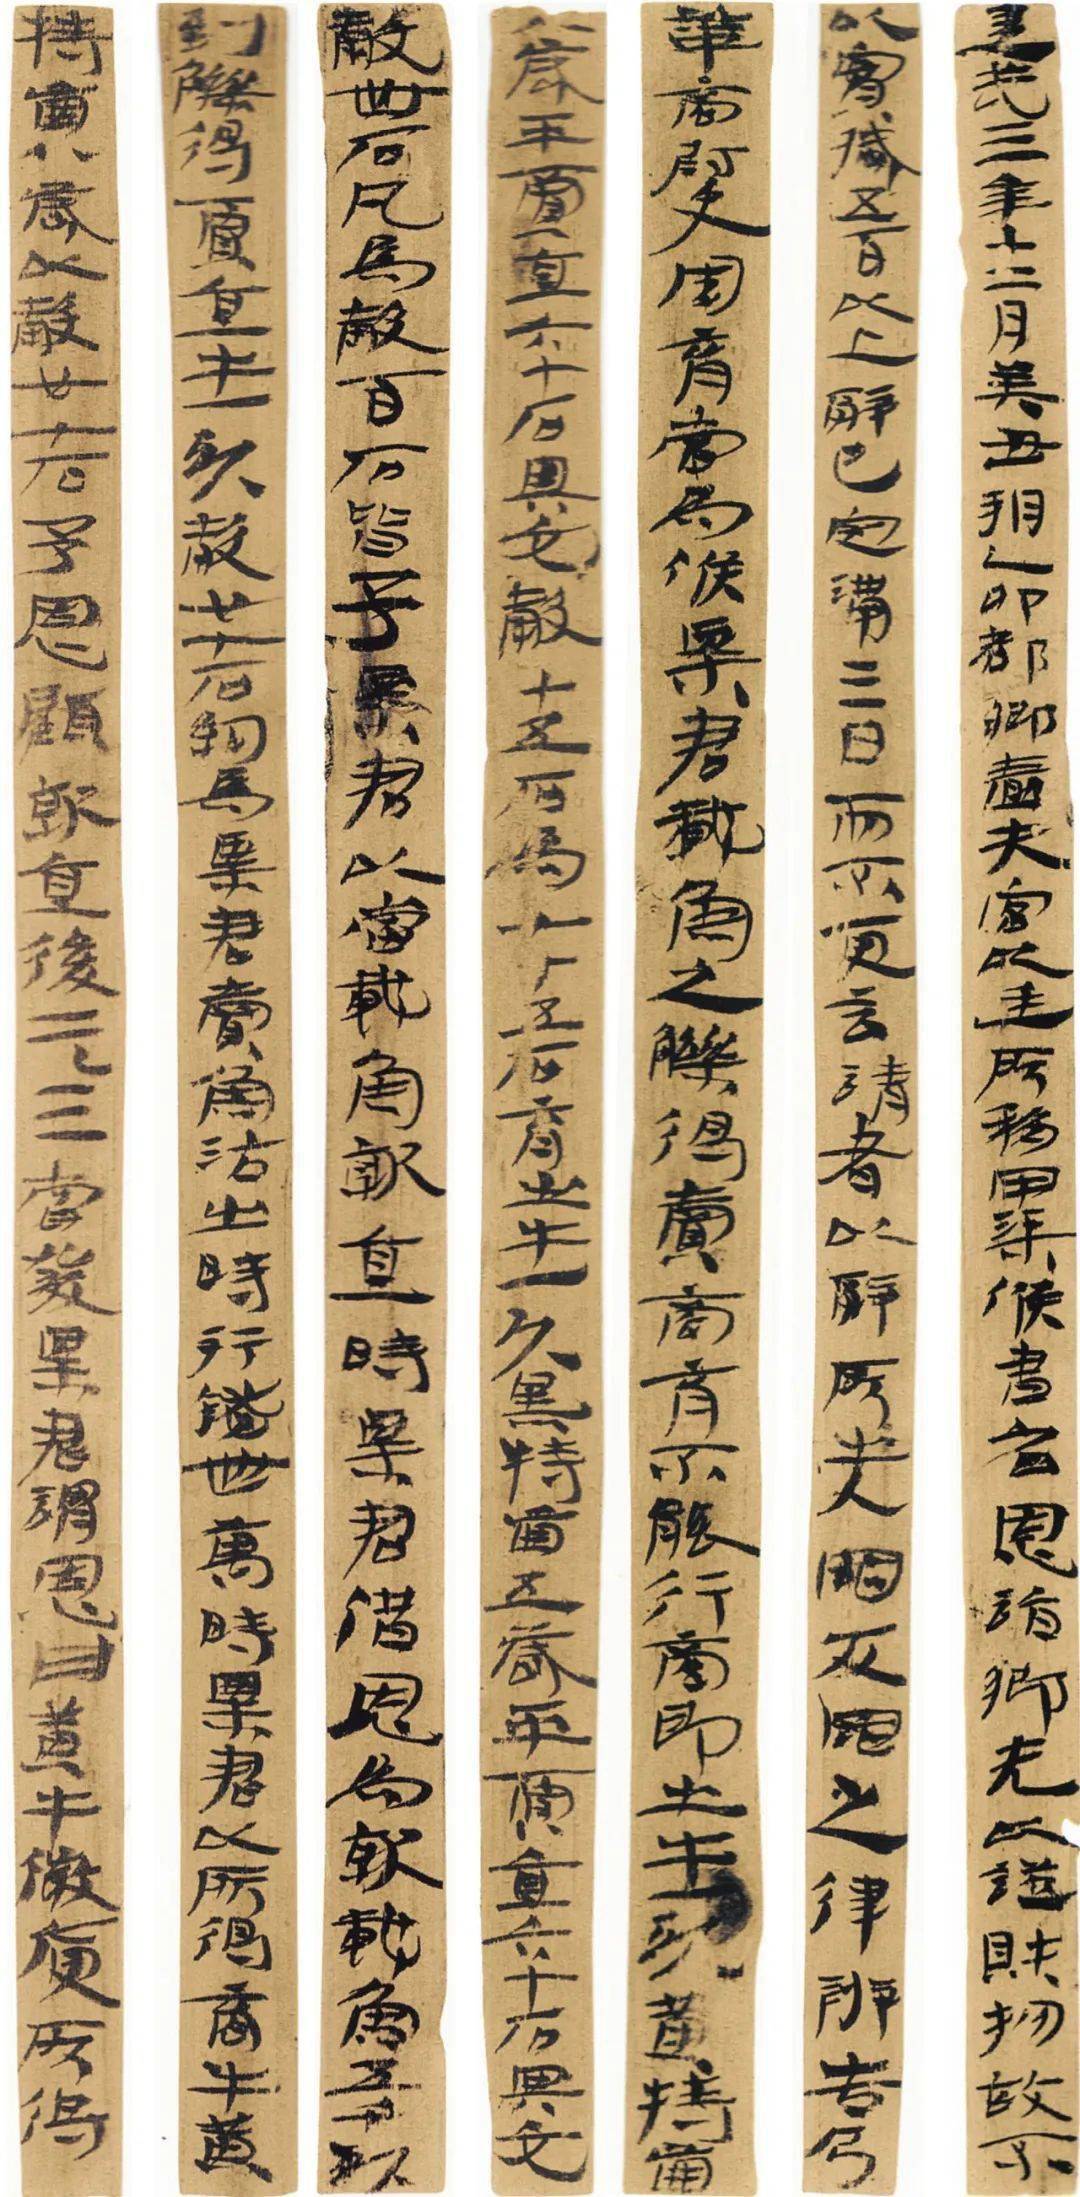 建武三年十二月癸丑朔乙卯都鄉嗇夫宮以廷所移甲渠候書召恩詣鄉先以證財物故不
以實臧五百以上辭已定滿三日而不更言請者以辭所出入罪反罪之律辨告乃
華商尉史周育當為候粟君載魚之觻得賣商育不能行商即出牛一頭黃特齒
八歲平賈直六十石與它穀十五石為七十五石育出牛一頭黑特齒五歲平賈直六十石與它
穀卌石凡為穀百石皆予粟君以當載魚就直時粟君借恩為就載魚五千頭
到觻得賈直牛一頭穀廿七石約為粟君賣魚沽出時行錢卌萬時粟君以所得商牛黃
特齒八歲以穀廿七石予恩顧就直後二三日當發粟君謂恩曰黃牛微庾所得